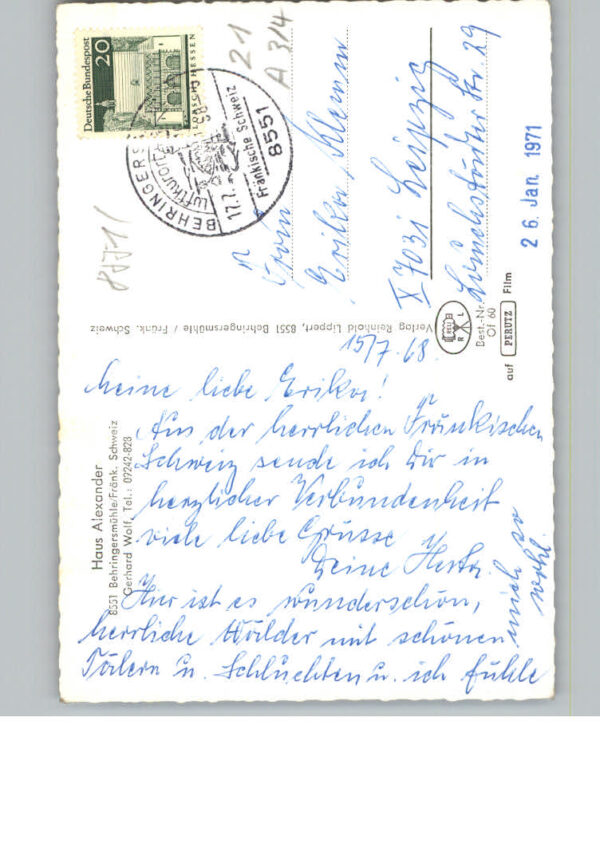 Deutsche Bundespost
20
LORSCH/HESSEN
BEHRINGERS
Luftkurort
17.7.
Fränkische Schweiz
8551
21
A 3/4
8551/
Erika Klemm
X 7031 Leipzig
29
26. Jan. 1971
Verlag Reinhold Lippert, 8551 Behringersmühle / Fränk. Schweiz
RELI
R L
Best.-Nr.
Of 60
auf PERUTZ Film
Haus Alexander
8551 Behringersmühle/Fränk. Schweiz
Gerhard Wolf, Tel.: 09242-828
15/7.68.
Meine liebe Erika!
Aus der herrlichen Fränkischen
Schweiz sende ich Dir in
herzlicher Verbundenheit
viele liebe Grüsse
Deine Herta.
Hier ist es wunderschön,
herrliche Wälder mit schönen
Tälern u. Schluchten u. ich fühle
mich so
wohl.